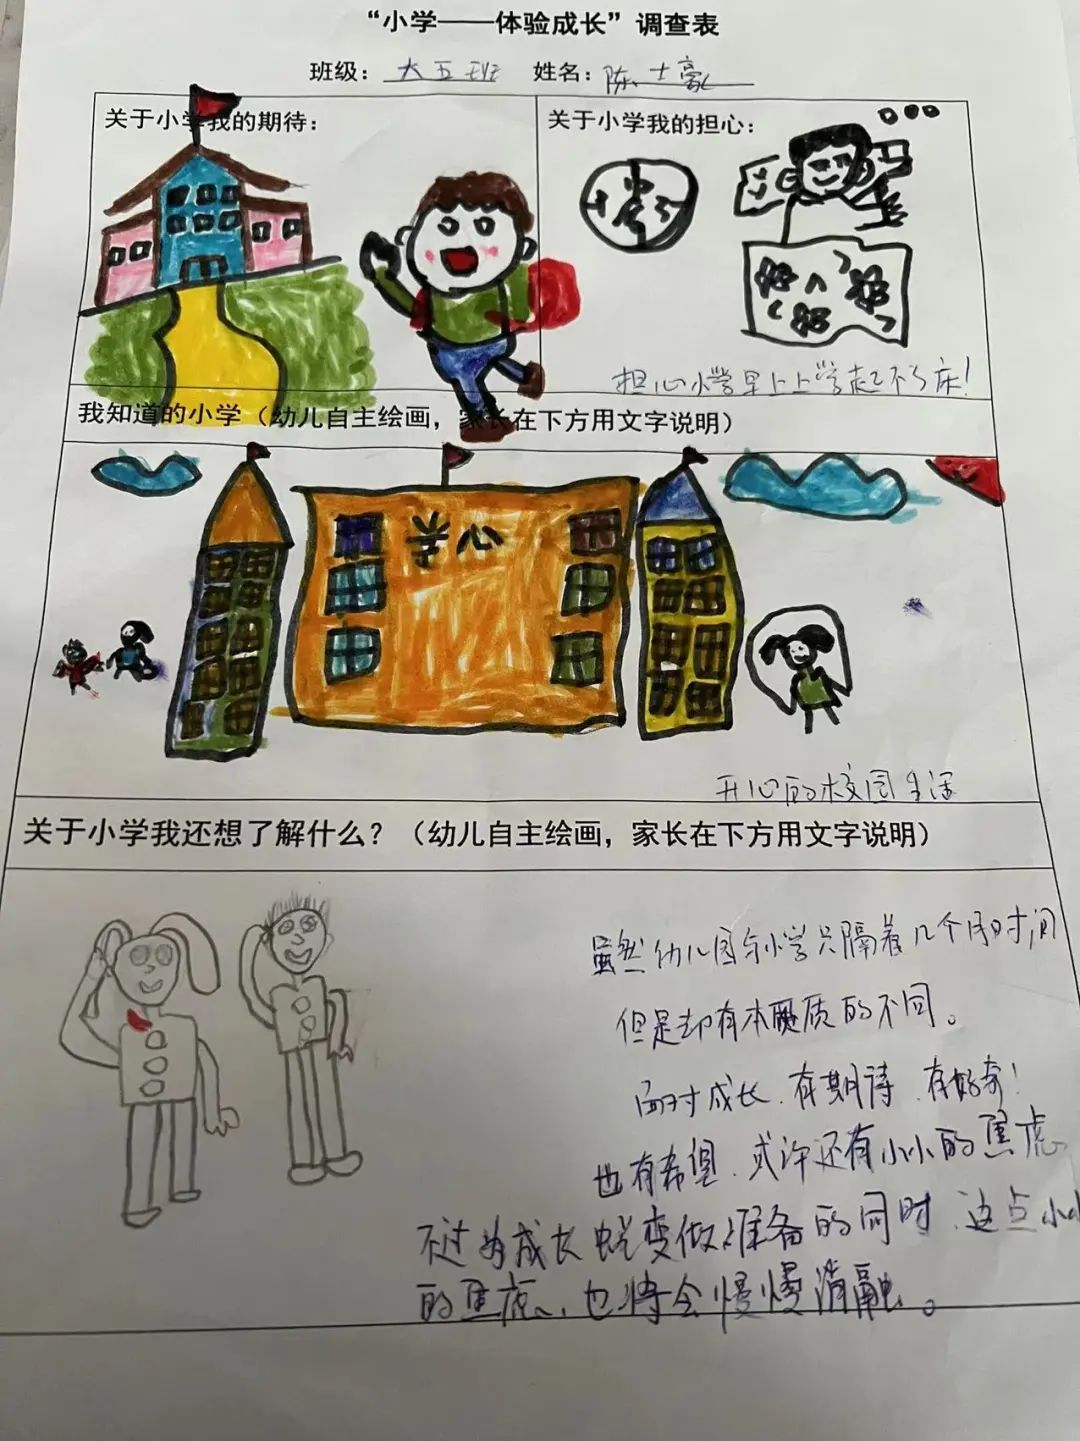 “小学——体验成长”调查表
班级：大五班 姓名：陈士豪
关于小学我的期待：
关于小学我的担心：
担心小学早上上学起不了床！
我知道的小学（幼儿自主绘画，家长在下方用文字说明）
学心
开心的校园生活
关于小学我还想了解什么？（幼儿自主绘画，家长在下方用文字说明）
虽然幼儿园与小学只隔着几个月时间
但是却有本质的不同。
面对成长、有期待、有好奇！
也有希望、或许还有小小的焦虑
不过为成长蜕变做准备的同时、这点小小
的焦虑、也将会慢慢消融。